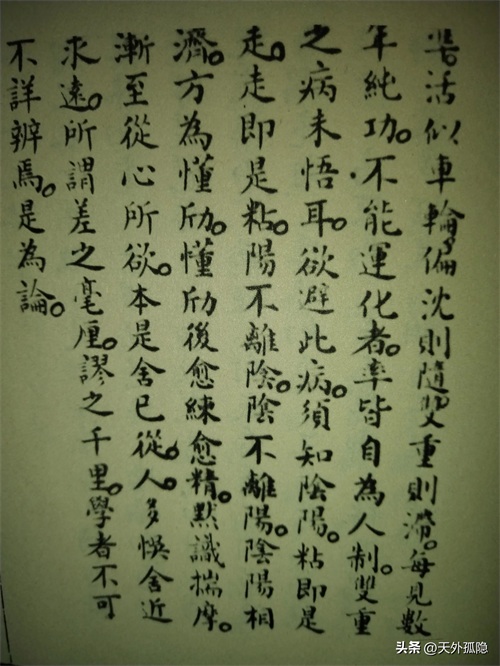 活似車輪偏沈則隨雙重則滯。每見數
年純功。不能運化者。率皆自為人制。雙重
之病未悟耳。欲避此病。須知陰陽。粘即是
走。走即是粘。陽不離陰。陰不離陽。陰陽相
濟。方為懂劤。懂劤後愈練愈精。默識揣摩。
漸至從心所欲。本是舍己從。人。多悞舍近
求遠。所謂差之毫厘。謬之千里。學者不可
不詳辨焉。是為論。
头条 @天外孤隐